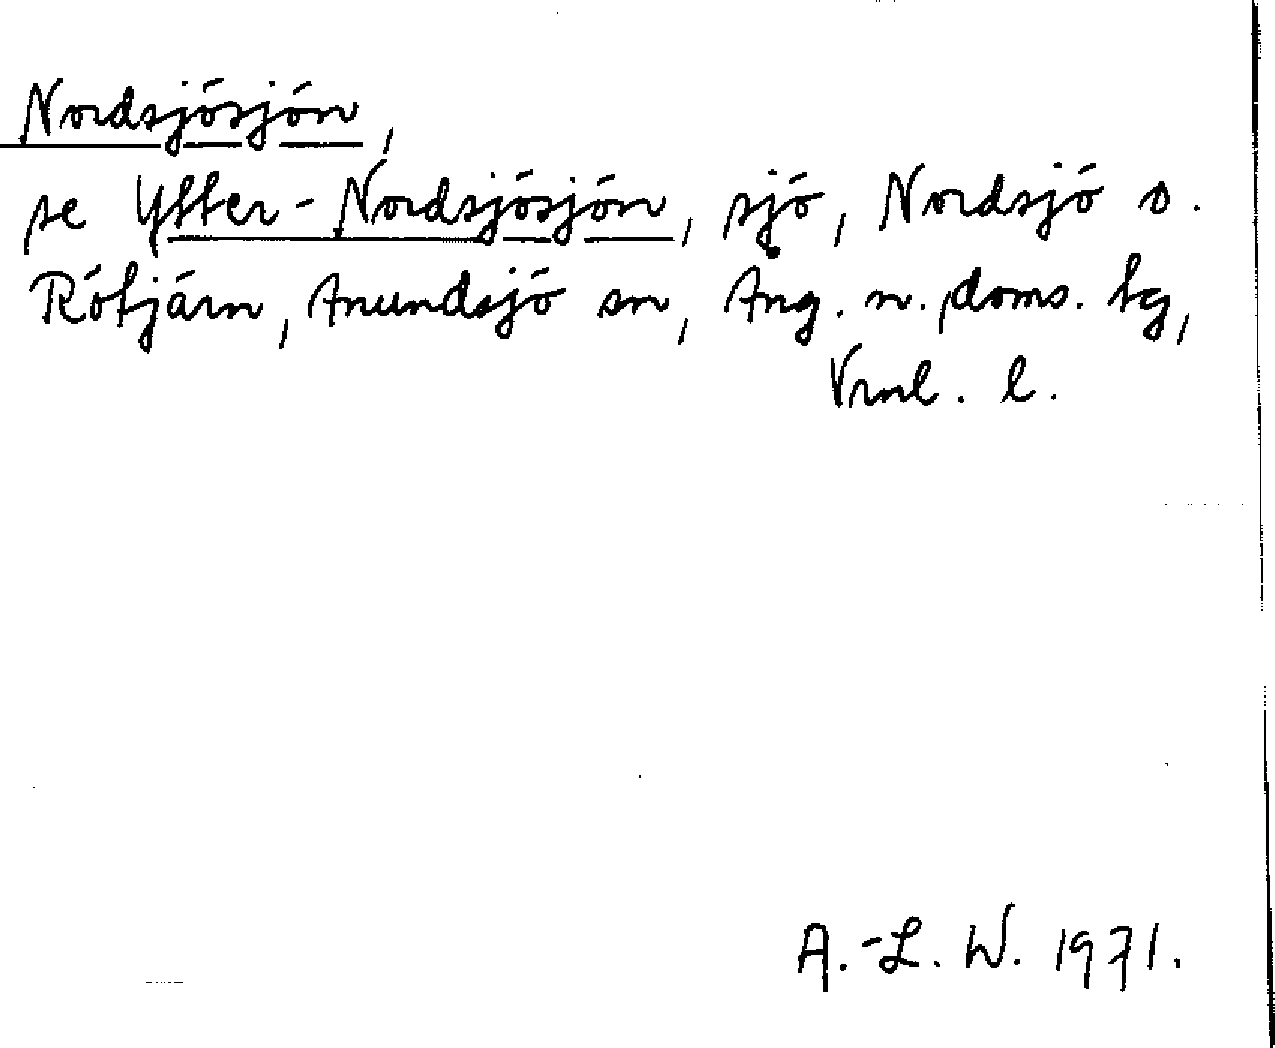 Nordsjösjön,
se Ytter-Nordsjösjön, sjö, Nordsjö o.
Rötjärn, Anundsjö sn, Ång. n. doms. tg,
Vrnl. l.
A.-L. W. 1971.